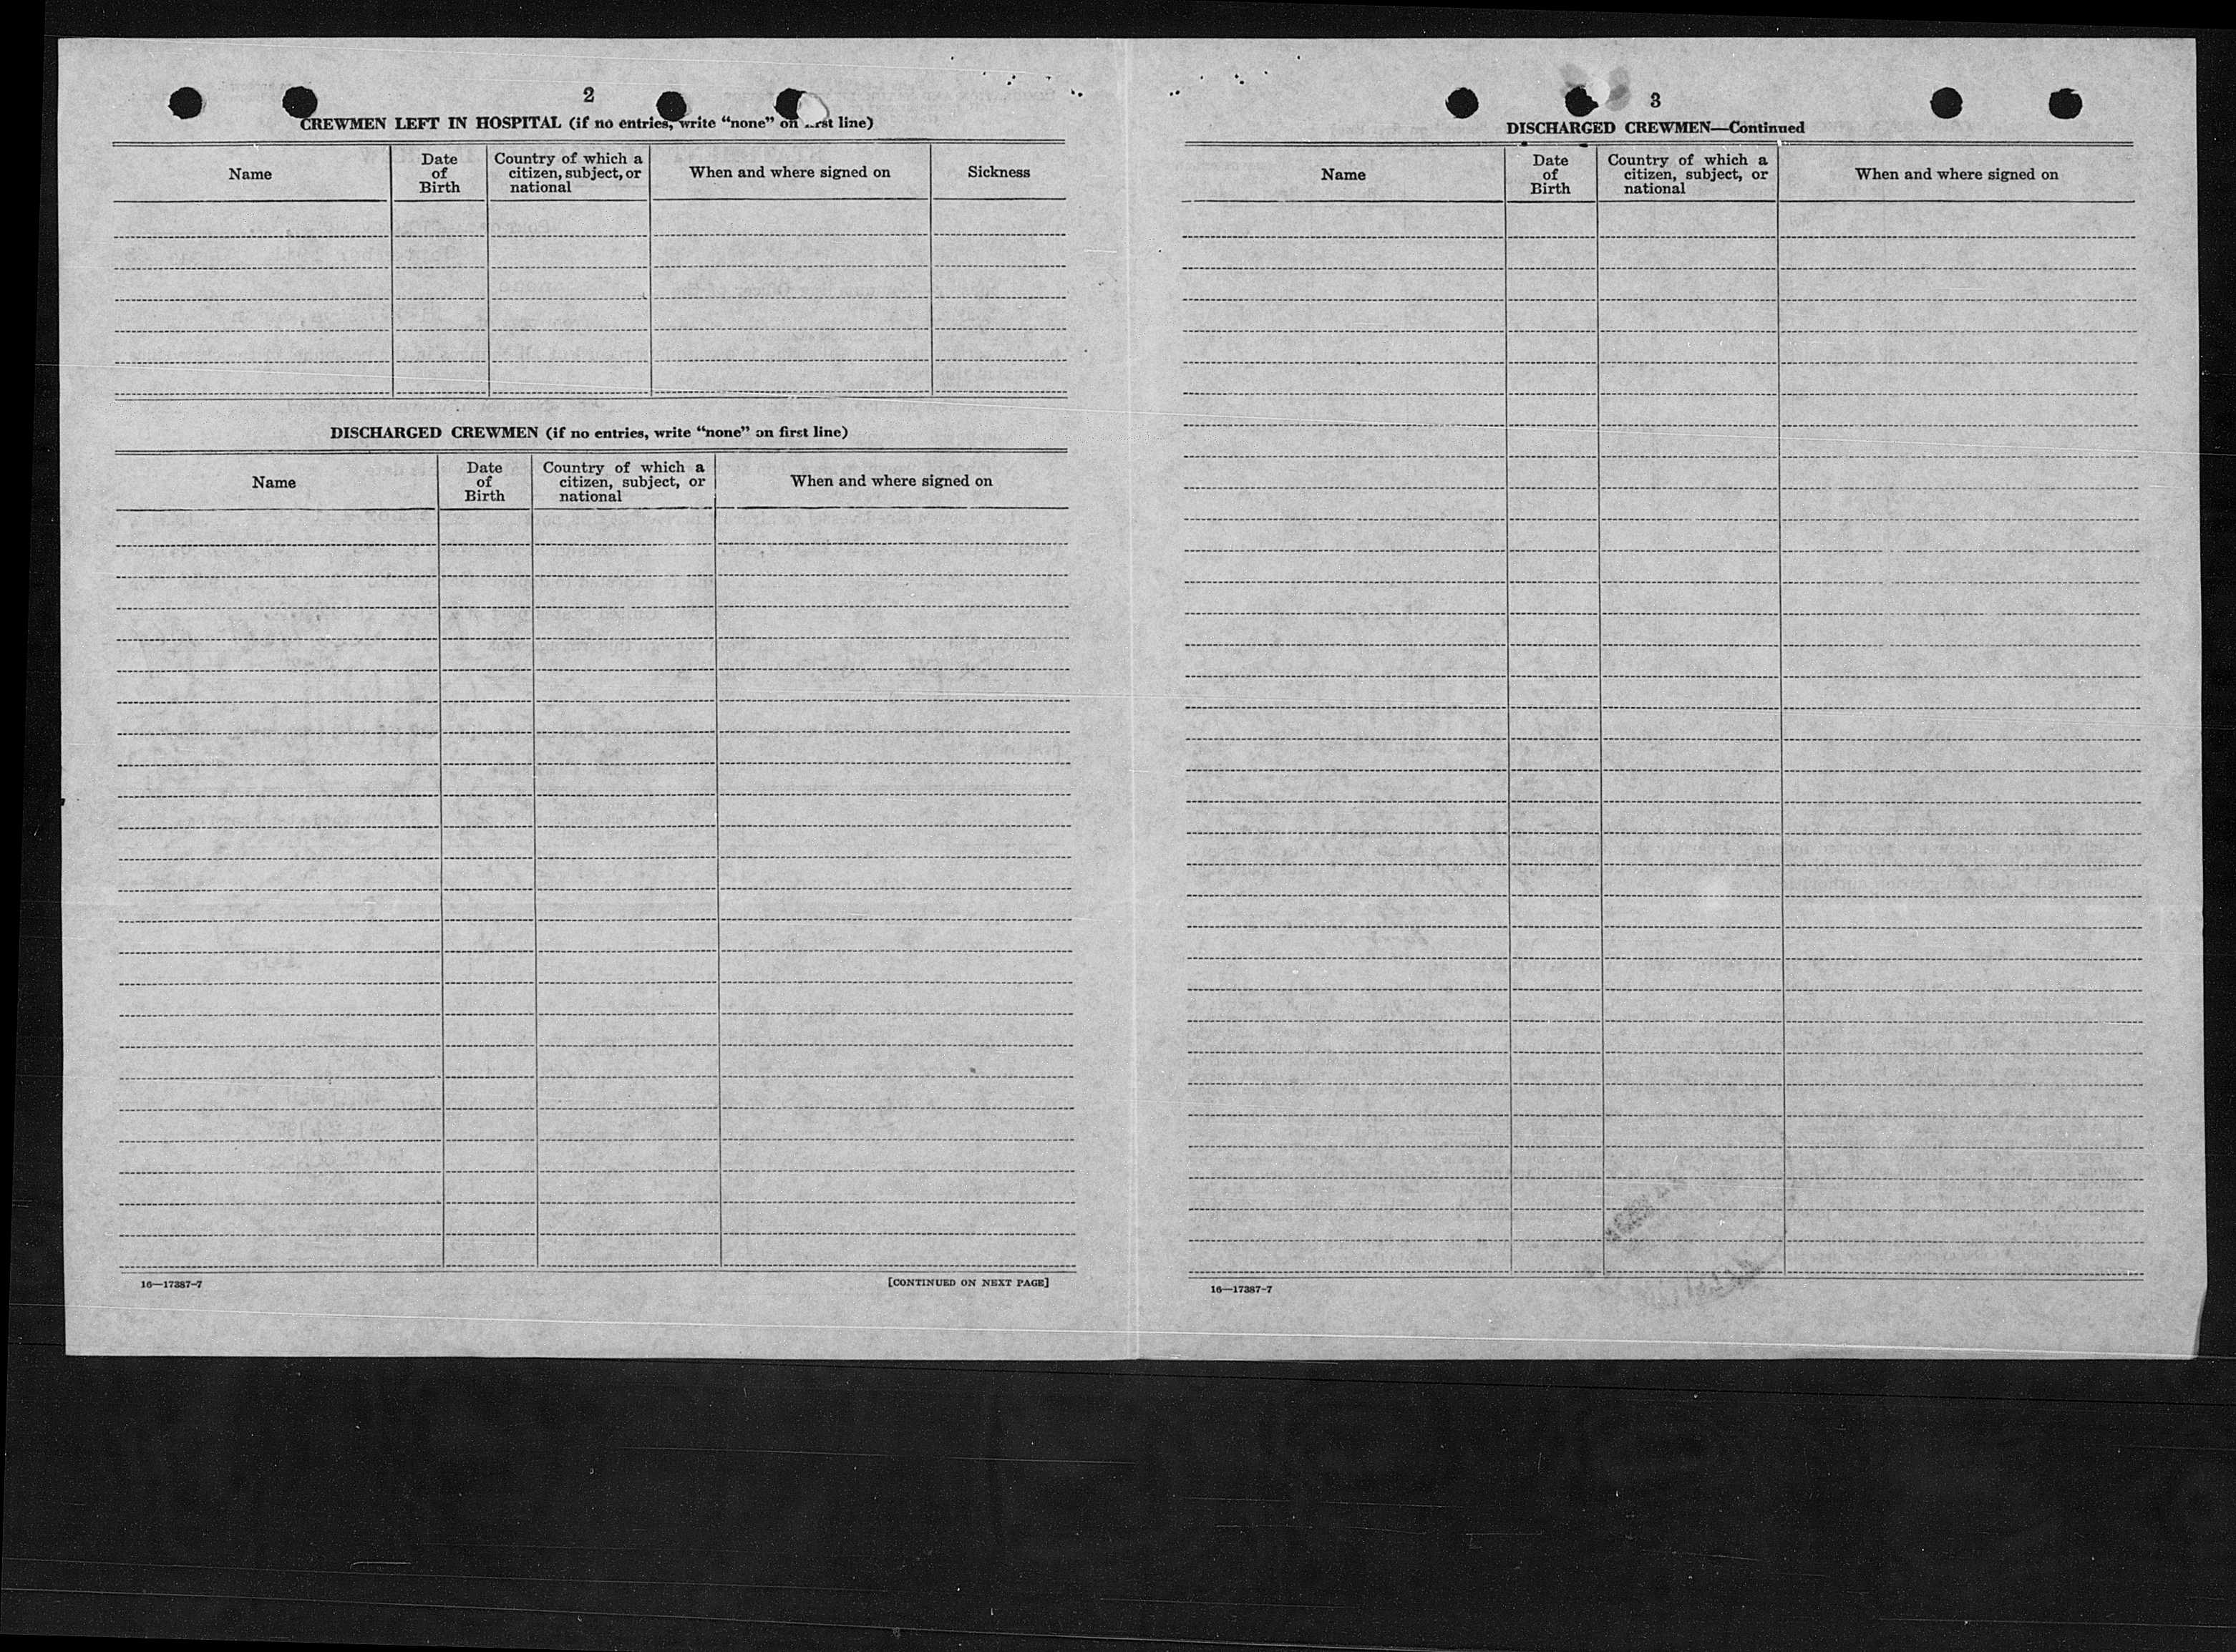 2
CREWMEN LEFT IN HOSPITAL (if no entries, write “none” on line)
Name
Date
of
Birth
Country of which a
citizen, subject, or
national
When and where signed on
Sickness
DISCHARGED CREWMEN (if no entries, write “none” on first line)
Name
Date
of
Birth
Country of which a
citizen, subject, or
national
When and where signed on
16—17387-7
[CONTINUED ON NEXT PAGE]
3
DISCHARGED CREWMEN—Continued
Name
Date
of
Birth
Country of which a
citizen, subject, or
national
When and where signed on
16—17387-7